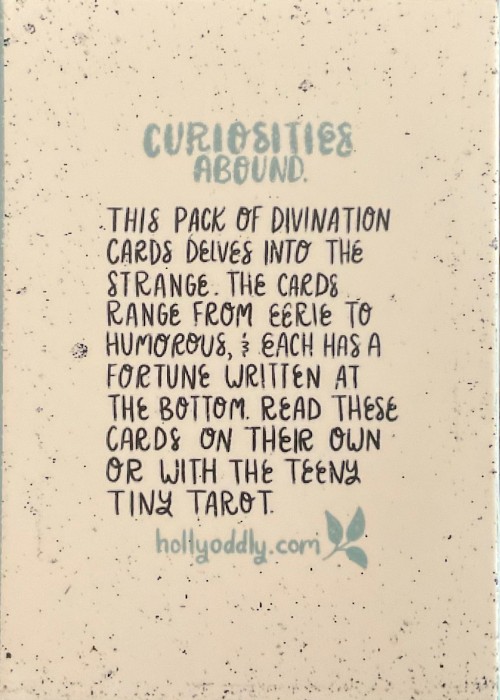 CURIOSITIES
ABOUND.
THIS PACK OF DIVINATION
CARDS DELVES INTO THE
STRANGE. THE CARDS
RANGE FROM EERIE TO
HUMOROUS, & EACH HAS A
FORTUNE WRITTEN AT
THE BOTTOM. READ THESE
CARDS ON THEIR OWN
OR WITH THE TEENY
TINY TAROT.
hollyoddly.com